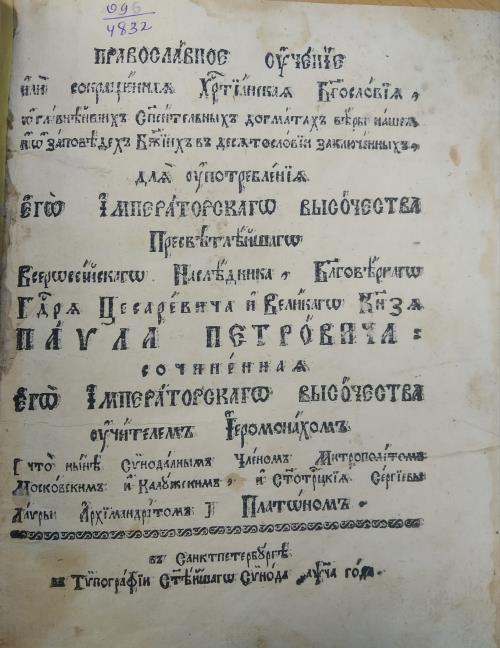 096
4832
ПРАВОСЛА́ВНОЕ ОУ҆ЧЕ́НЇЕ
и҆лѝ сокраще́ннаѧ Хрⷭ҇тїа́нскаѧ Бг҃осло́вїѧ,
ѡ҆ гла́внѣйшихъ Спⷭ҇и́тельныхъ до́гматахъ вѣ́ры на́шеѧ
и҆ ѡ҆ за́повѣдехъ Бж҃їихъ въ десѧтосло́вїи заключе́нныхъ,
длѧ̀ оу҆потребле́нїѧ
Є҆ГѠ̀ И҆МПЕРА́ТОРСКАГѠ ВЫСО́ЧЕСТВА
Пресвѣтлѣ́йшагѡ
Всерѡссі́йскагѡ Наслѣ́дника, Бл҃говѣ́рнагѡ
Гдⷭ҇рѧ Цесаре́вича и҆ Вели́кагѡ Кнѧ́зѧ
ПА́УЛА ПЕТРО́ВИЧА:
сочине́ннаѧ
Є҆ГѠ̀ И҆МПЕРА́ТОРСКАГѠ ВЫСО́ЧЕСТВА
оу҆чи́телемъ І҆еромона́хомъ
[ что̀ ны́нѣ Сѵнода́лнымъ Чле́номъ Митрополі́томъ
Моско́вскимъ и҆ Калꙋ́жскимъ, и҆ Ст҃отро́цкїѧ Се́ргїевы
ла́vры А҆рхїмандрі́томъ ] Плато́номъ.
въ Санктпетербꙋ́ргѣ
въ Тѷпогра́фїи Ст҃ѣ́йшагѡ Сѵно́да го́да.